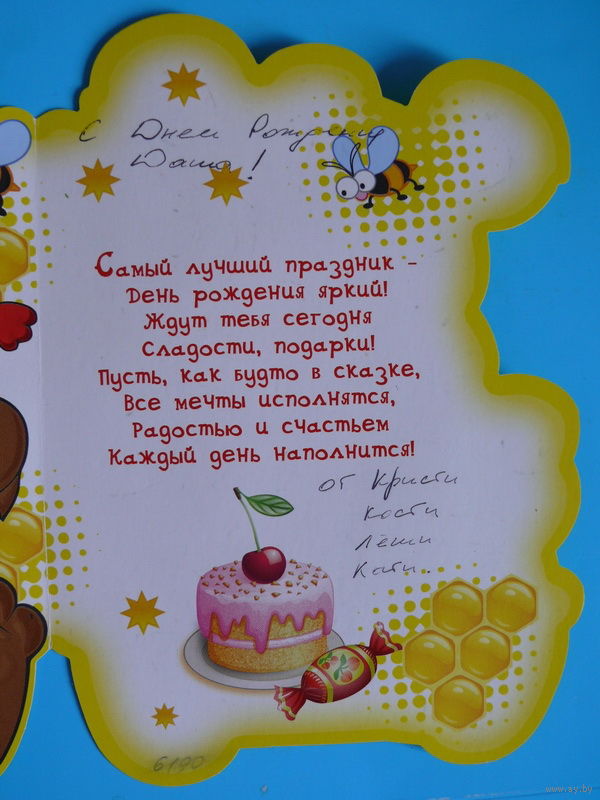 С Днем Рождения
Даша!
Самый лучший праздник -
День рождения яркий!
Ждут тебя сегодня
Сладости, подарки!
Пусть, как будто в сказке,
Все мечты исполнятся,
Радостью и счастьем
Каждый день наполнится!
от Кристи
Кости
Лёши
Кати.
6190
www.ay.by